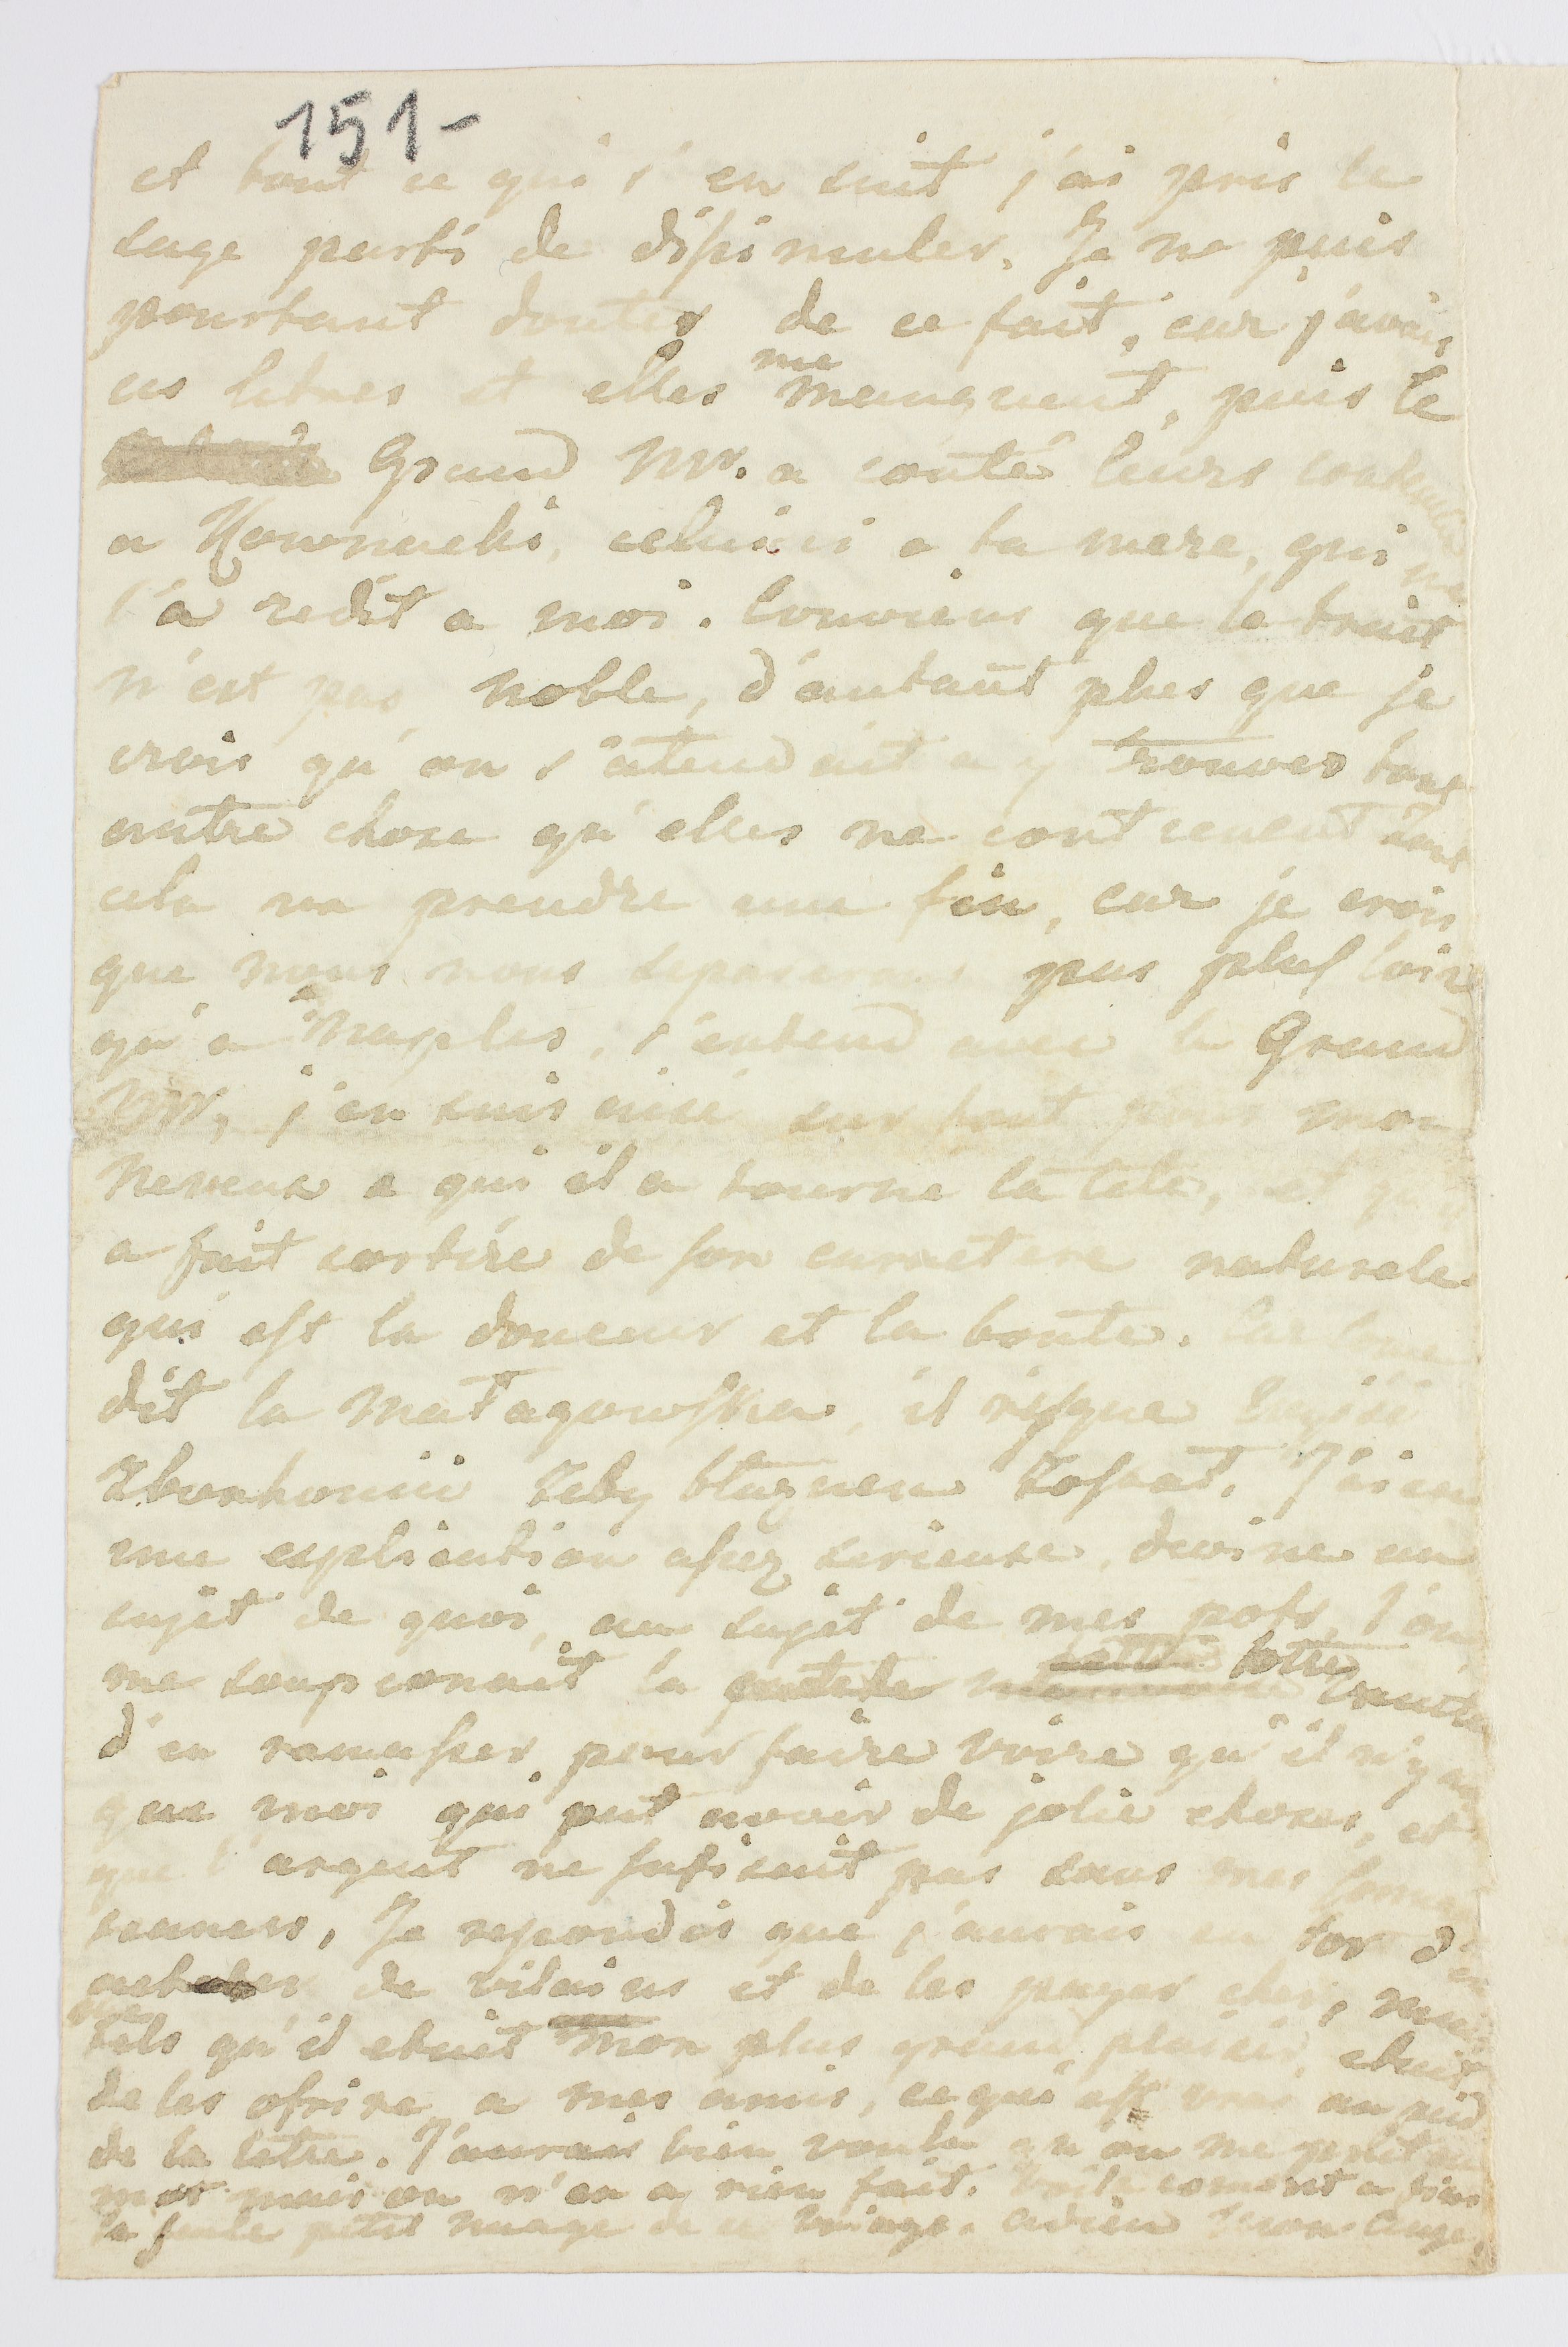 151-
et tout ce qui s'en suit j'ai pris le
sage parti de dissimuler. Je ne puis
pourtant douter de ce fait, car j'avois
ces letres et elles me manquent, puis le
Grand Mr. a conté leurs contenu
a Kownacki, celui ci a ta mere, qui
l'a redit a moi. Conviens que le trait
n'est pas noble, d'autant plus que je
crois qu'on s'atendait a y trouver tout
autre chose qu'elles ne contienent
cela va prendre une fin, car je crois
que nous nous separerons pas plus loin
qu'a Naples, s'entend avec le Grand
Mr, j'en suis aise sur tout pour mon
neveux a qui il a tourne la tete, et qu'il
a fait sortire de son caractere naturele
qui est la douceur et la bonte.
dit la Matagowska, il risque
Zeby blaznem zostać. J'ai eu
une explication assez serieuse, devine au
sujet de quoi, au sujet de mes pots, l'on
me soupconait la sotte vanité
d'en ramasser pour faire voire qu'il n'y a
que moi qui put avoir de jolie choses, et
que l'argent ne sufisait pas sans mes
Je repondis que j'aurais eu tor d'en
acheter de vilains et de les payer cher, mais
qu'il etait mon plus grand plaisir etait
de les ofrire a mes amis, ce qui est vrai au pied
de la letre. J'aurais bien voulu qu'on me prit au
mot mais on n'en a rien fait. Voila coment a fini
le seule petit nuage de ce voiage. adieu mon ange